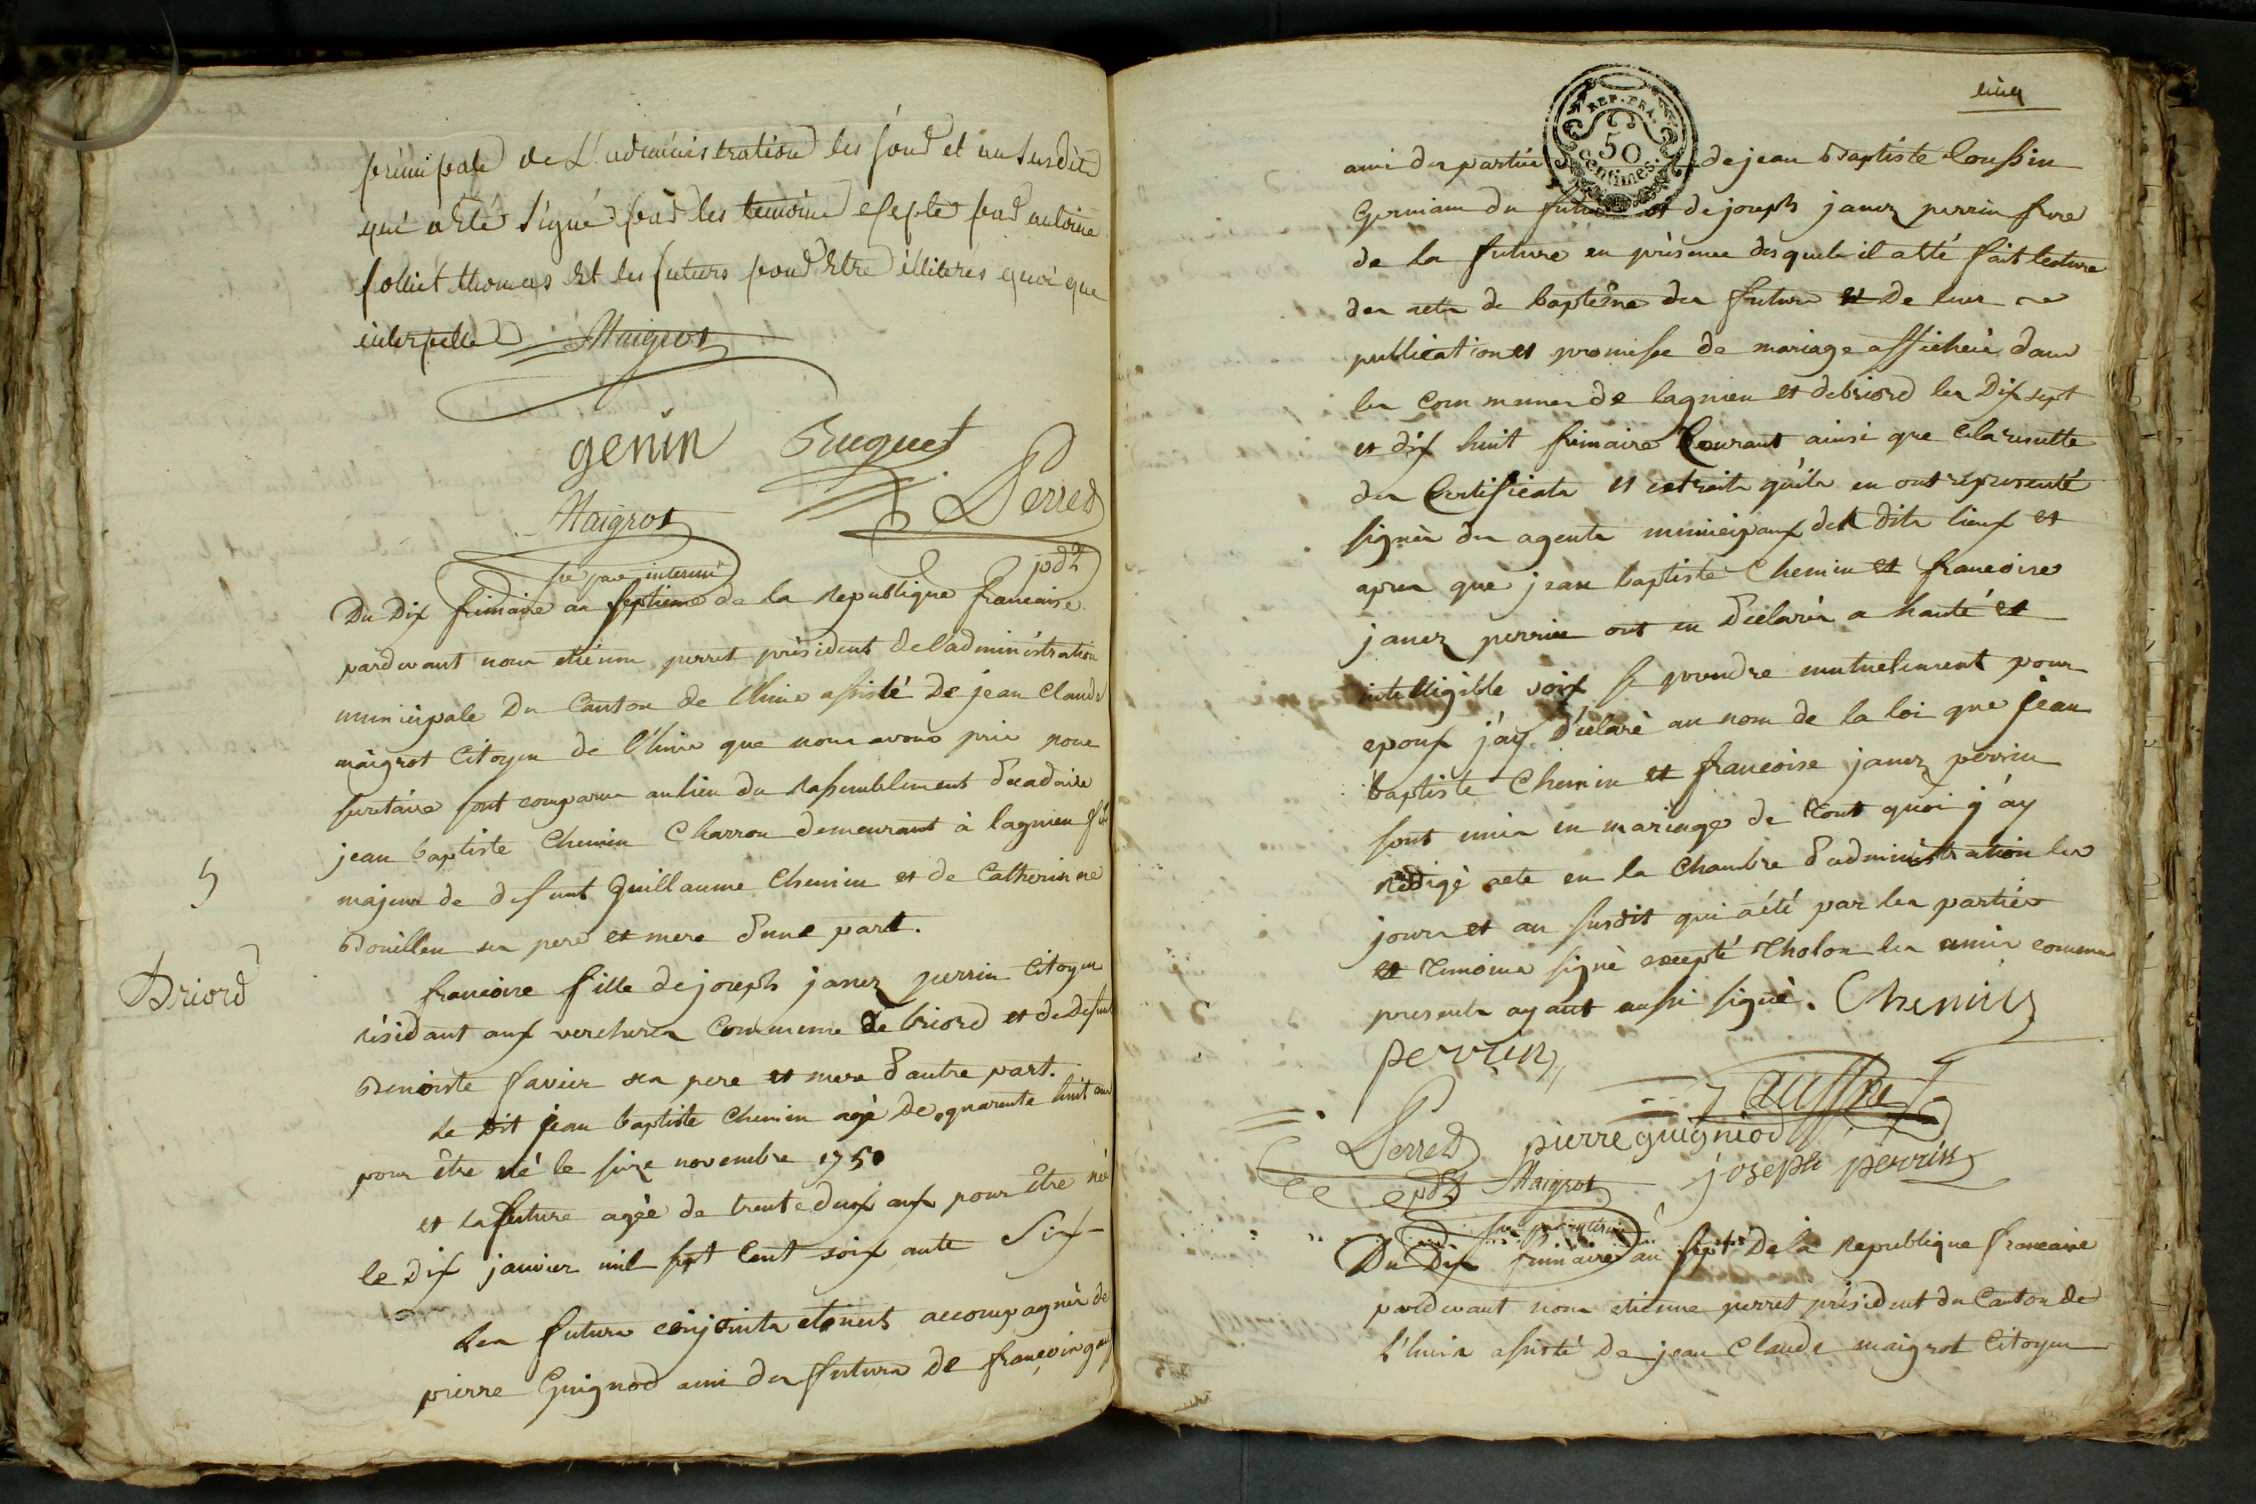 principale de L'administration les jour et an susdits
qui a Eté signé par les temoins excepté par antoine
folliet thomas Et les futurs pour Etre illiterés quoi que
interpellé Maigrot
genin Buquet
Maigrot Perret
sre par interim pdt
Du Dix frimaire an septieme de la Republique francaise
pardevant nous etienne perret président de l'administration
municipale Du Canton de l'huis assisté De jean Claude
maigrot Citoyen de l'huis que nous avons pris pour
secretaire sont comparu au lieu du Rassemblement decadaire
jean baptiste Chemin Charron demeurant à lagnieu fils
majeur de defunt Guillaume Chemin et de Catherinne
5
Bouilleu ses pere et mere d'une part.
Briord
francoise fille de joseph janez perrin Citoyen
résidant aux vercheres Commune de briord et de Defunte
Benoiste favier ses pere et mere d'autre part.
Le dit jean baptiste Chemin agé De quarente huit ans
pour être né le seize novembre 1750
et la future agée de trente deux ans pour être née
le Dix janvier mil sept Cent soixante Six
Les futurs conjoints etoient accompagnés de
pierre Guignod ami des futurs de françois
cinq
ami des parties de jean Baptiste Coussin
Germain du futur et de joseph janez perrin frere
de la future en présence desquels il a été fait lecture
des actes de baptême des futurs et De leur
publication et promesse de mariage affichées dans
les Communes de lagnieu et de briord les Dix sept
et dix huit frimaire Courant ainsi que cela resulte
des Certificats et extraits qu'ils en ont representé
signés des agents municipaux des dits lieux et
apres que jean baptiste Chemin et francoise
janez perrin ont eu Déclarés a haute et
intelligible voix se prendre mutuelement pour
epoux j'ay Déclaré au nom de la loi que jean
baptiste Chemin et francoise janez perrin
sont unis en mariage de tout quoi j'ay
rédigé acte en la Chambre d'administration les
jours et an susdit qui a été par les parties
et temoins signé excepté Tholon les amis comme
presents ayant aussi signé. Chemin
perrin
Perret pierre guigniod
pdt Maigrot joseph perrin
sre par interim
Du Dix frimaire an sept De la Republique francaise
pardevant nous etienne perret président du Canton de
l'huis assisté De jean Claude maigrot Citoyen
REP. FRA.
50
centimes.